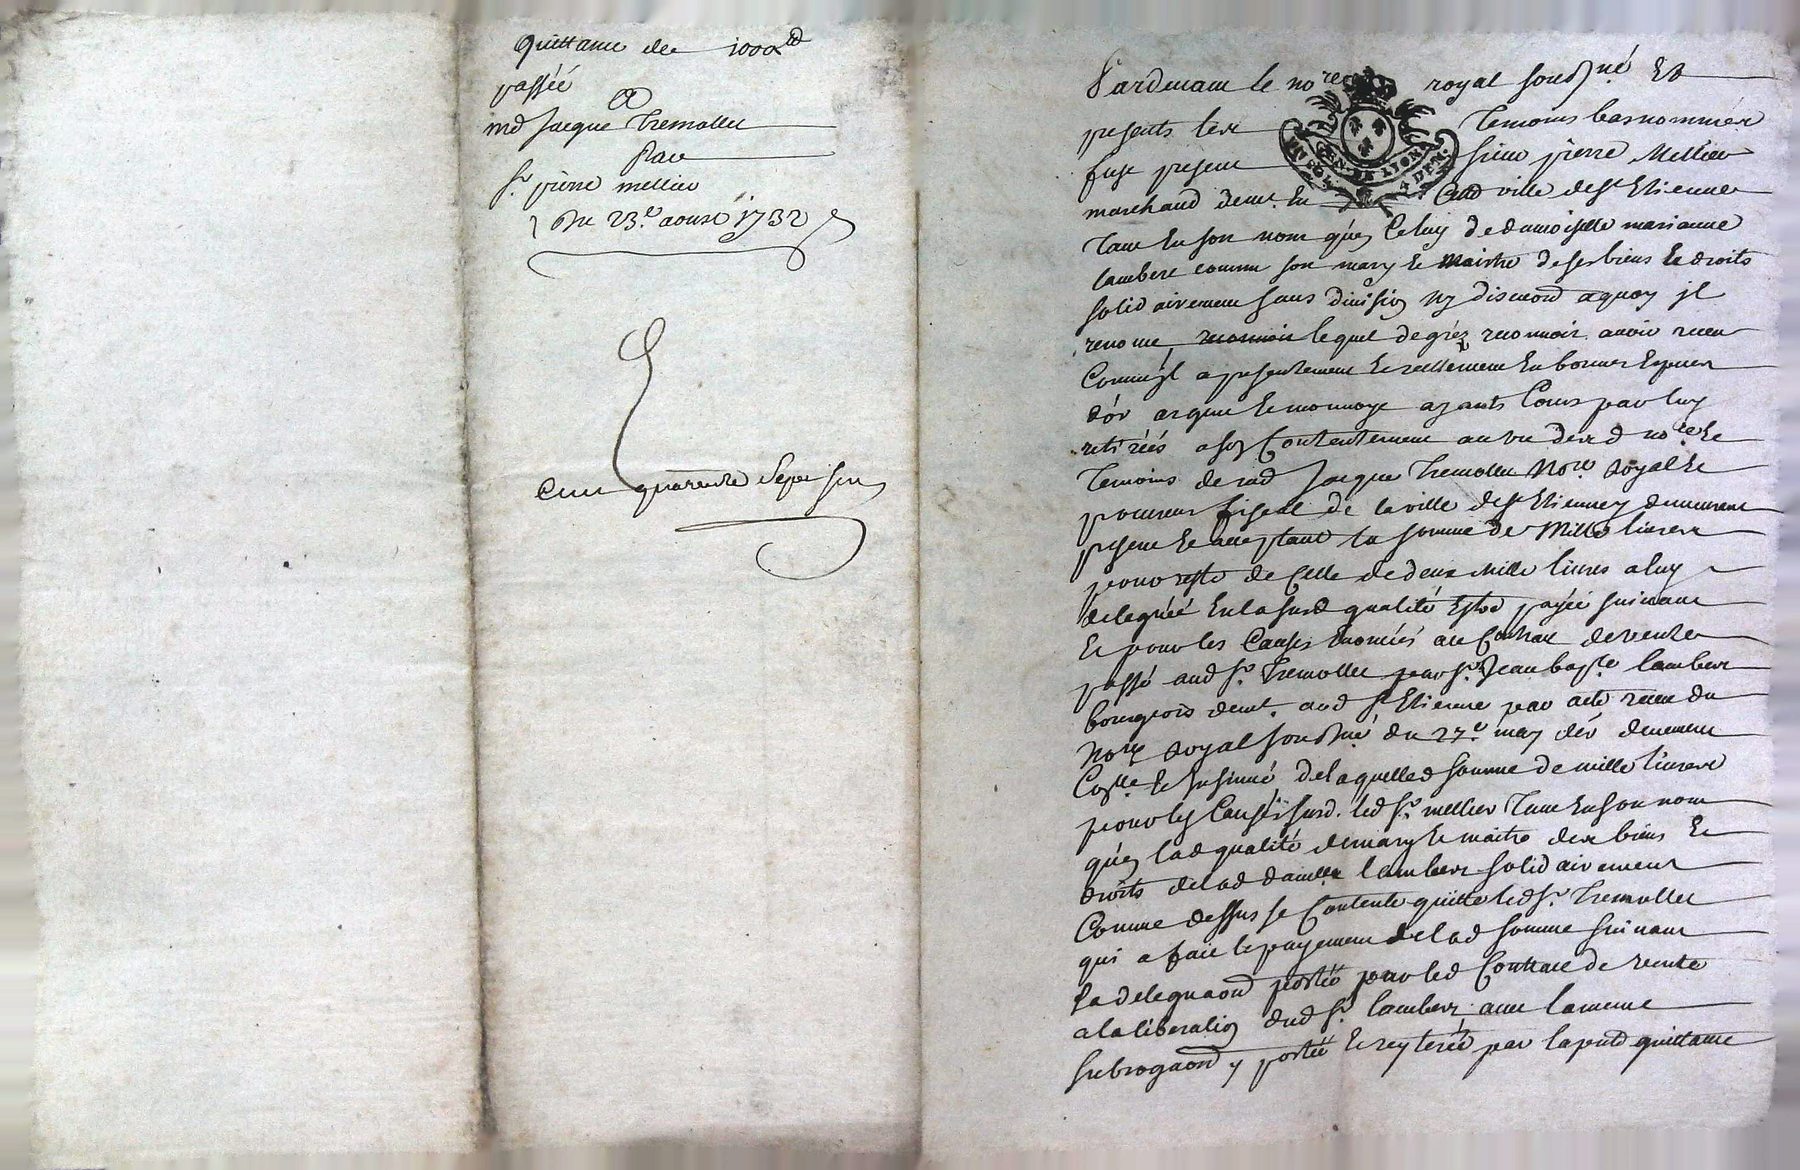 Quittance de 1000ᵗᵗ
passée
A
md Jacque Tremollet
Par
Sʳ pierre mellier
Du 23.ᵉ aoust 1732
E
Cent quarente Sept six
Pardevant le noʳᵉ royal sousigné Et
presents les Temoins bas nommés
fust present sieur pierre Mellier
marchand demt. En lad ville de St Etienne
Tant En son nom qu'en Celuy de damoiselle marianne
lambert comme son mary Et Maistre de ses biens Et droits
solidairement sans division ny discution a quoy il
renonce, lequel de grés reconnoit avoir receu
Comme il a presentement Et reellement En bonnes Especes
d'or argent Et monnoye ayants Cours par luy
retirées a son Contentement au vu dud noʳᵉ Et
Temoins de md Jacque Tremollet Noʳᵉ Royal Et
procureur fiscal de la ville de St Etienne y demeurant
present Et acceptant la somme de Mille livres
pour reste de Celle de deux Mille livres a luy
deleguée En la susd qualité Estre payée suivant
Et pour les Causes Enoncées au Contrat de vente
passé aud Sʳ. Tremollet par Sʳ. Jean bapte. lambert
bourgeois demt. aud St Etienne par acte receu du
Noʳᵉ Royal sousigné du 27.ᵉ may dér deuement
Coll.ᵉ Et Insinué de laquelle somme de mille livres
pour les Causes susd. led Sʳ. mellier Tant En son nom
qu'en lad qualité de mary Et maitre des biens Et
droits de lad damelle lambert solidairement
Comme dessus se Contente quitte led Sʳ. Tremollet
qui a fait le payement de lad somme suivant
La delegaon portée par led Contrat de vente
a la liberation dud Sʳ. lambert avec la meme
subrogaon y portée Et reyterée par la pnte quittance